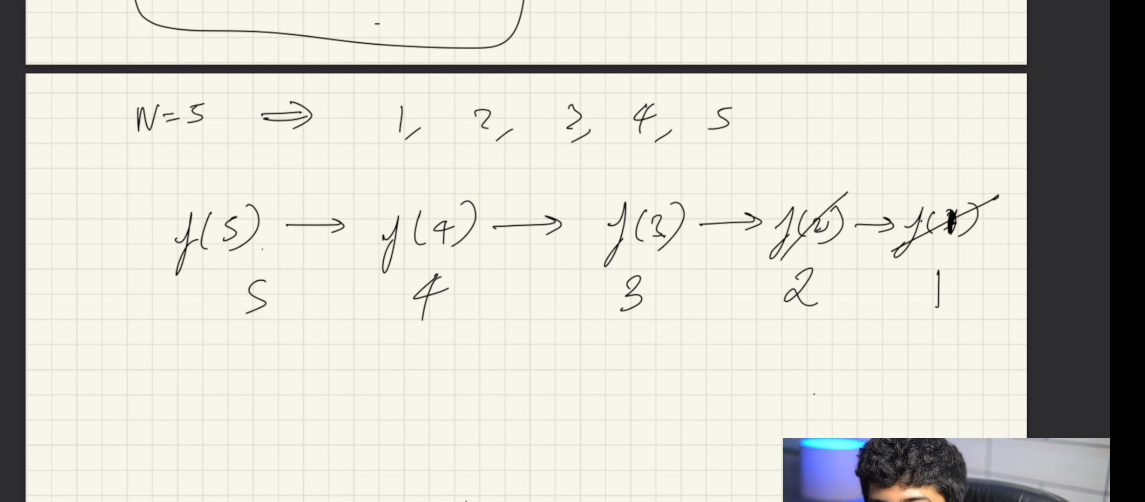 N=5 ⇒ 1, 2, 3, 4, 5
f(5) → f(4) → f(3) → f(2) → f(1)
5 4 3 2 1